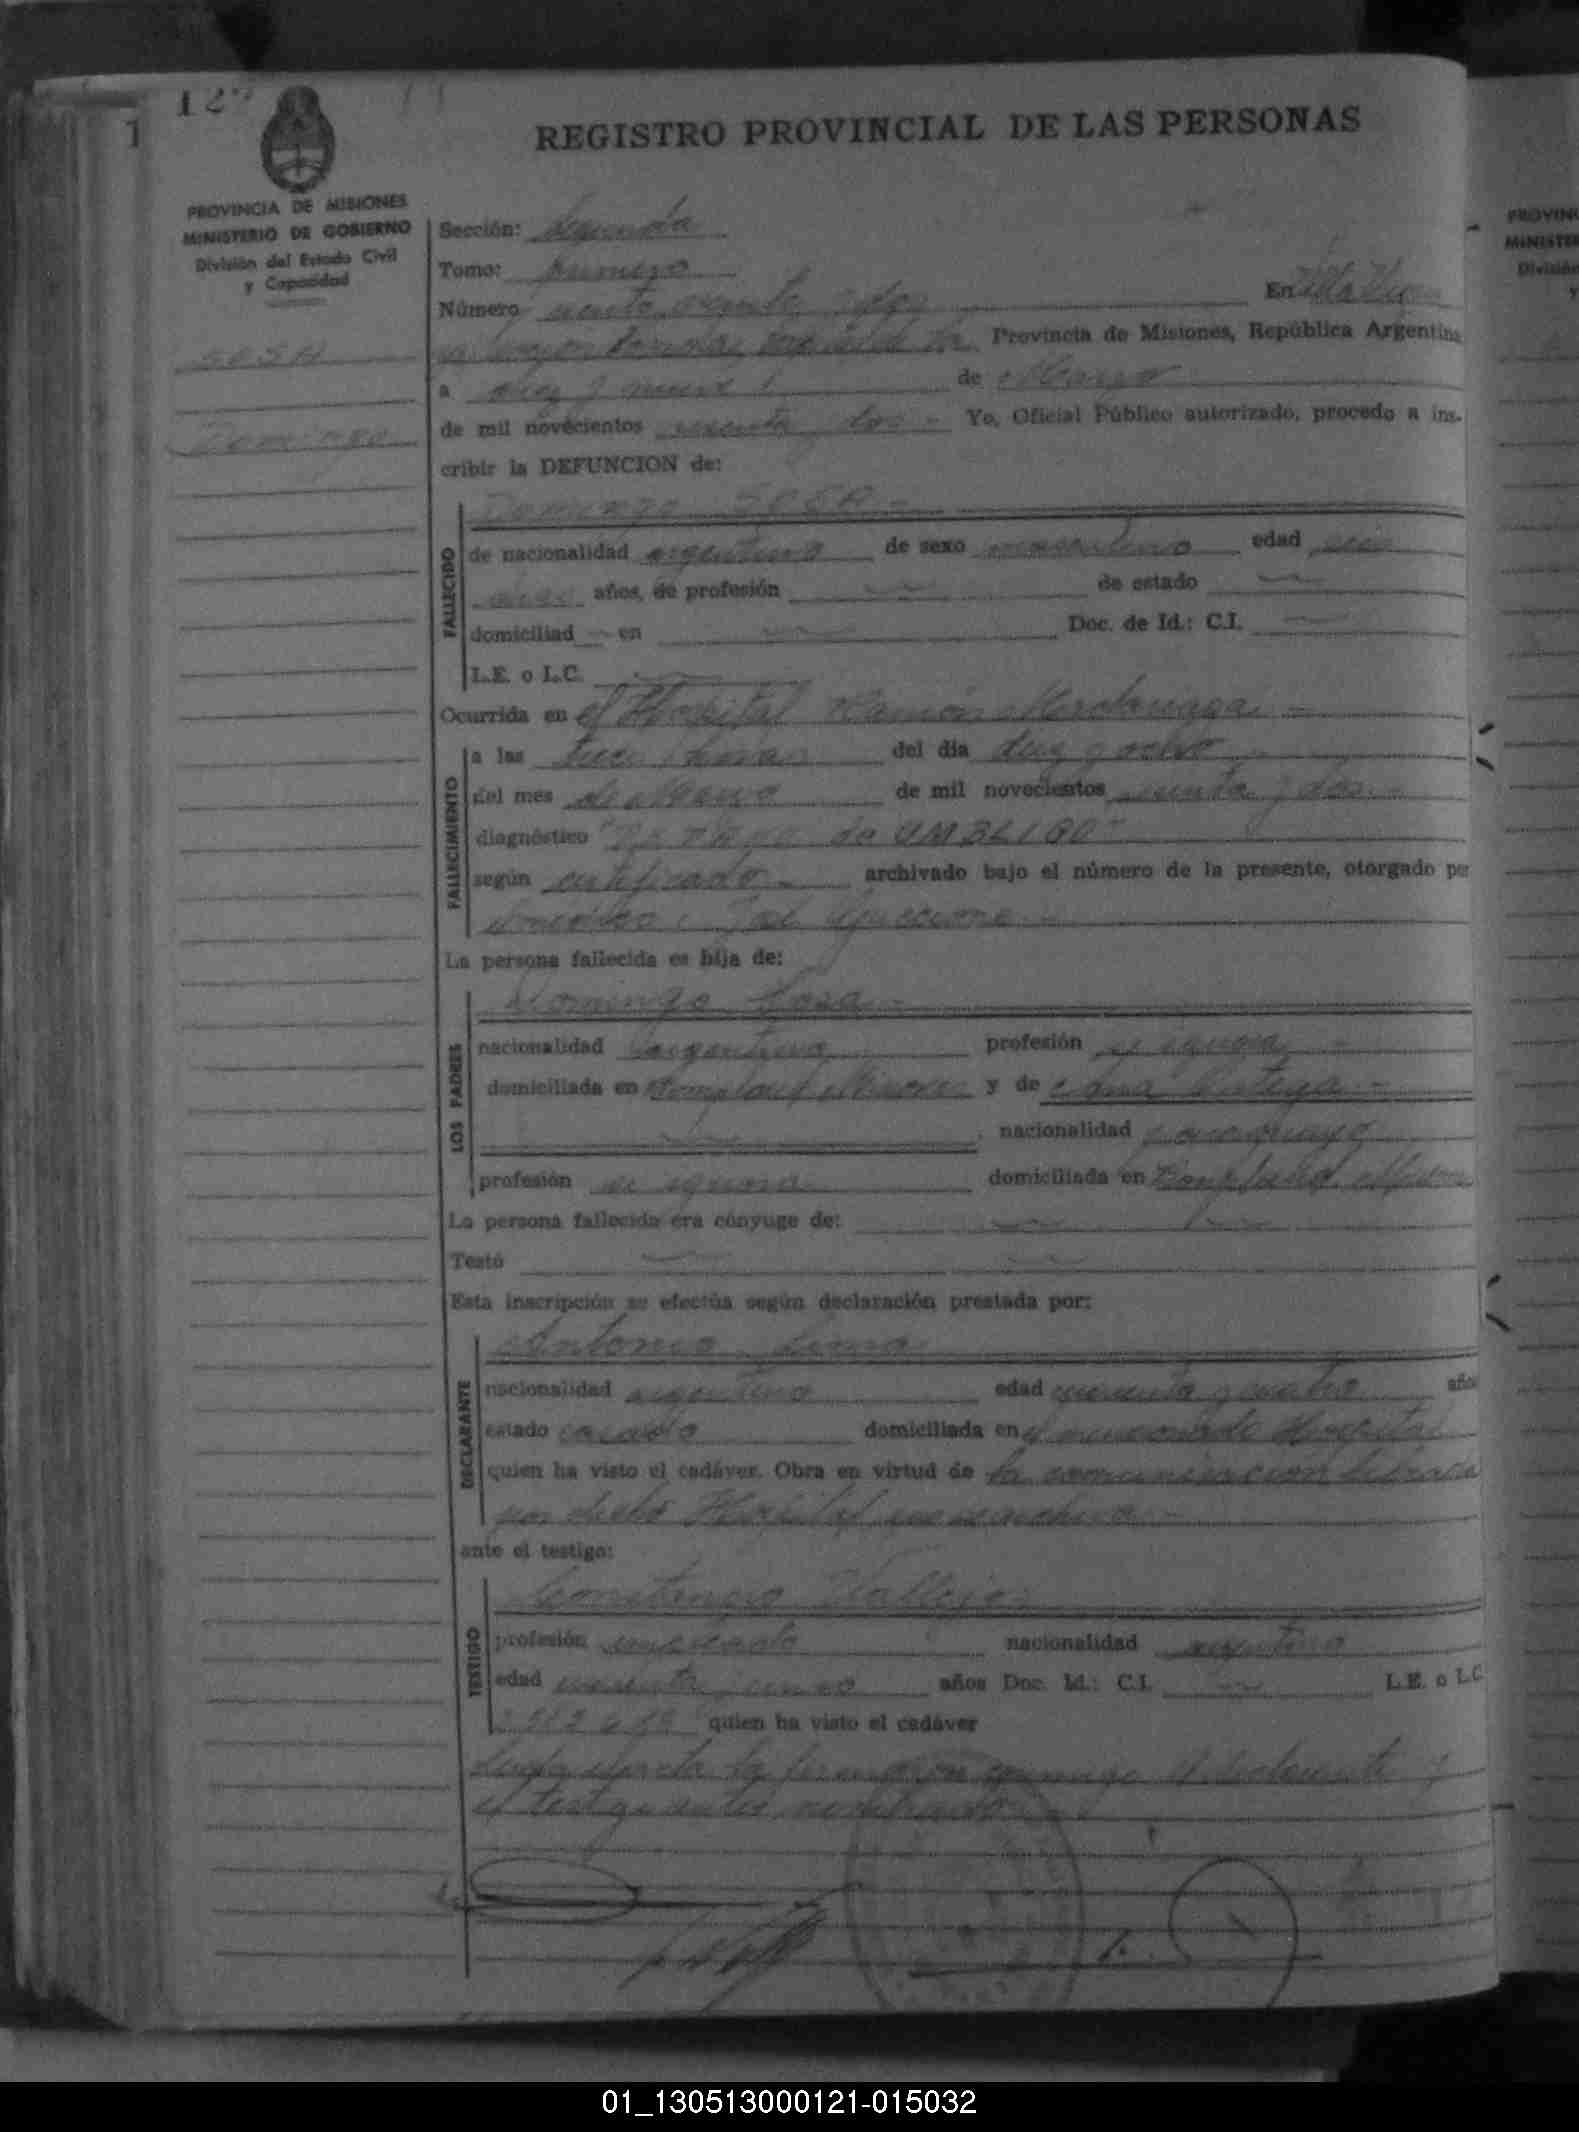 12
1
REGISTRO PROVINCIAL DE LAS PERSONAS
PROVINCIA DE MISIONES
MINISTERIO DE GOBIERNO
División del Estado Civil
y Capacidad
SOSA
Domingo
Sección: Segunda
Tomo: primero
Número ciento dos En
Provincia de Misiones, República Argentina
a diez y nueve de Marzo
de mil novecientos sesenta y dos - Yo, Oficial Público autorizado, procedo a ins-
cribir la DEFUNCION de:
FALLECIDO
Domingo SOSA -
de nacionalidad argentino de sexo masculino edad seis
dias años, de profesión de estado
domiciliad en Doc. de Id.: C.I.
L.E. o L.C.
Ocurrida en el Hospital Ramón Madariaga -
FALLECIMIENTO
a las trece horas del día diez y ocho
del mes de Marzo de mil novecientos sesenta y dos -
diagnóstico de UMBLIGO"
según certificado - archivado bajo el número de la presente, otorgado por
el médico José
La persona fallecida es hija de:
LOS PADRES
Domingo Sosa -
nacionalidad argentino profesión se ignora -
domiciliada en Bompland Misiones y de Ana Ortega -
nacionalidad paraguaya
profesión se ignora domiciliada en Bompland Misiones
La persona fallecida era cónyuge de:
Testó
Esta inscripción se efectúa según declaración prestada por:
DECLARANTE
Antonio Lima
nacionalidad argentino edad cuarenta y cuatro años
estado casado domiciliada en el mencionado Hospital
quien ha visto el cadáver. Obra en virtud de la comunicación librada
por dicho Hospital que se archiva -
ante el testigo:
TESTIGO
Constancio Vallejos
profesión empleado nacionalidad argentino
edad cinco años Doc. Id.: C.I. L.E. o L.C.
quien ha visto el cadáver
Leida el acta la firmaron conmigo el declarante y
el testigo antes nombrado
PROVINC
MINISTE
División
y
01_130513000121-015032